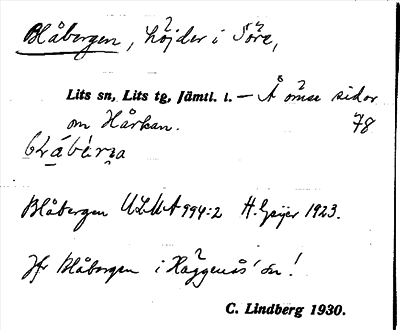 Blåbergen, höjder i Söre,
Lits sn, Lits tg, Jämtl. l. — Å ömse sidor
om Hårkan. 78
Blåbergen ULMA 994:2 H. Geijer 1923.
Jfr Blåbergen i Häggenås' sn!
C. Lindberg 1930.